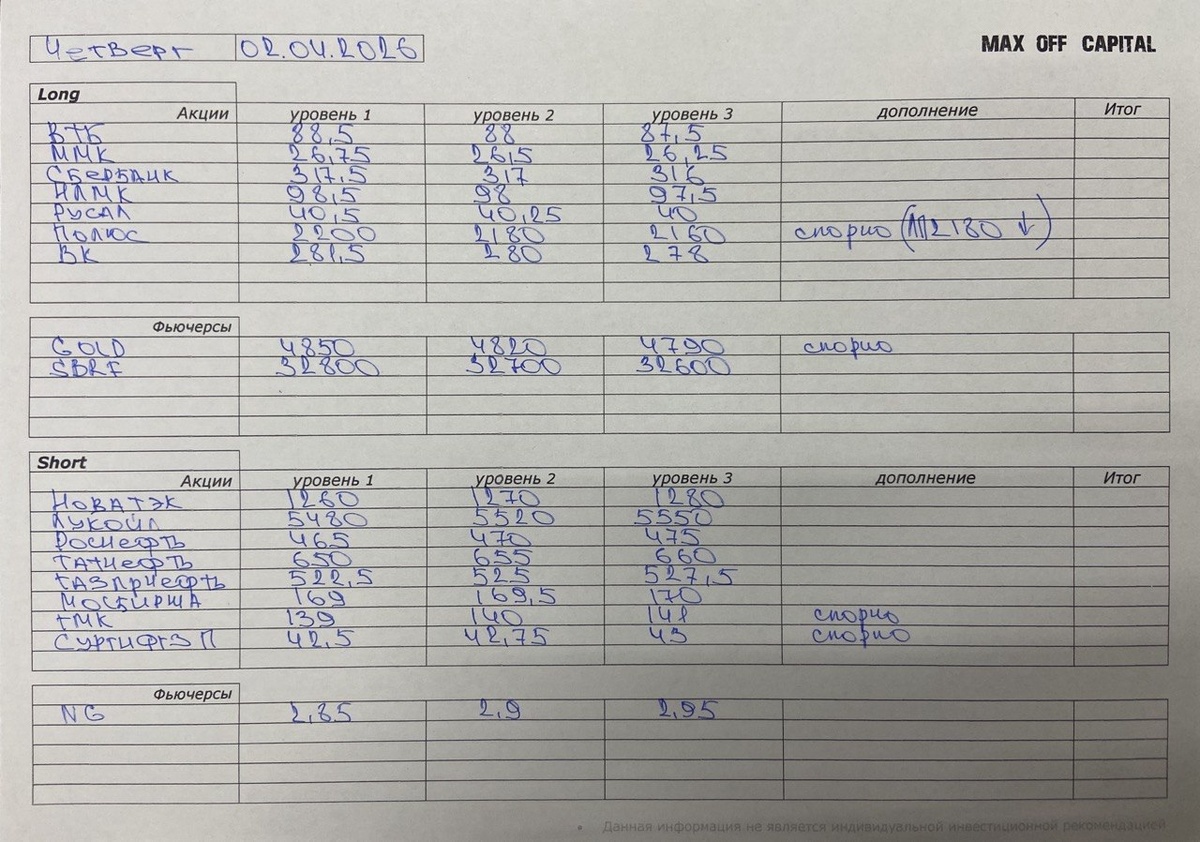 Четверг 02.04.2026 MAX OFF CAPITAL
Long
Акции уровень 1 уровень 2 уровень 3 дополнение Итог
ВТБ 88,5 88 87,5
ММК 26,75 26,5 26,25
СБЕРБАНК 317,5 317 316
НЛМК 98,5 98 97,5
РУСАЛ 40,5 40,25 40
ПОЛЮС 2200 2180 2160 спорно (ЛП2180 ↓)
ВК 281,5 280 278
Фьючерсы
GOLD 4850 4820 4790 спорно
SBRF 32800 32700 32600
Short
Акции уровень 1 уровень 2 уровень 3 дополнение Итог
НОВАТЭК 1260 1270 1280
ЛУКОЙЛ 5480 5520 5550
РОСНЕФТЬ 465 470 475
ТАТНЕФТЬ 650 655 660
ГАЗПРНЕФТЬ 522,5 525 527,5
МОСБИРЖА 169 169,5 170
ТМК 139 140 141 спорно
СУРГНФГЗ П 42,5 42,75 43 спорно
Фьючерсы
NG 2,85 2,9 2,95
Данная информация не является индивидуальной инвестиционной рекомендацией